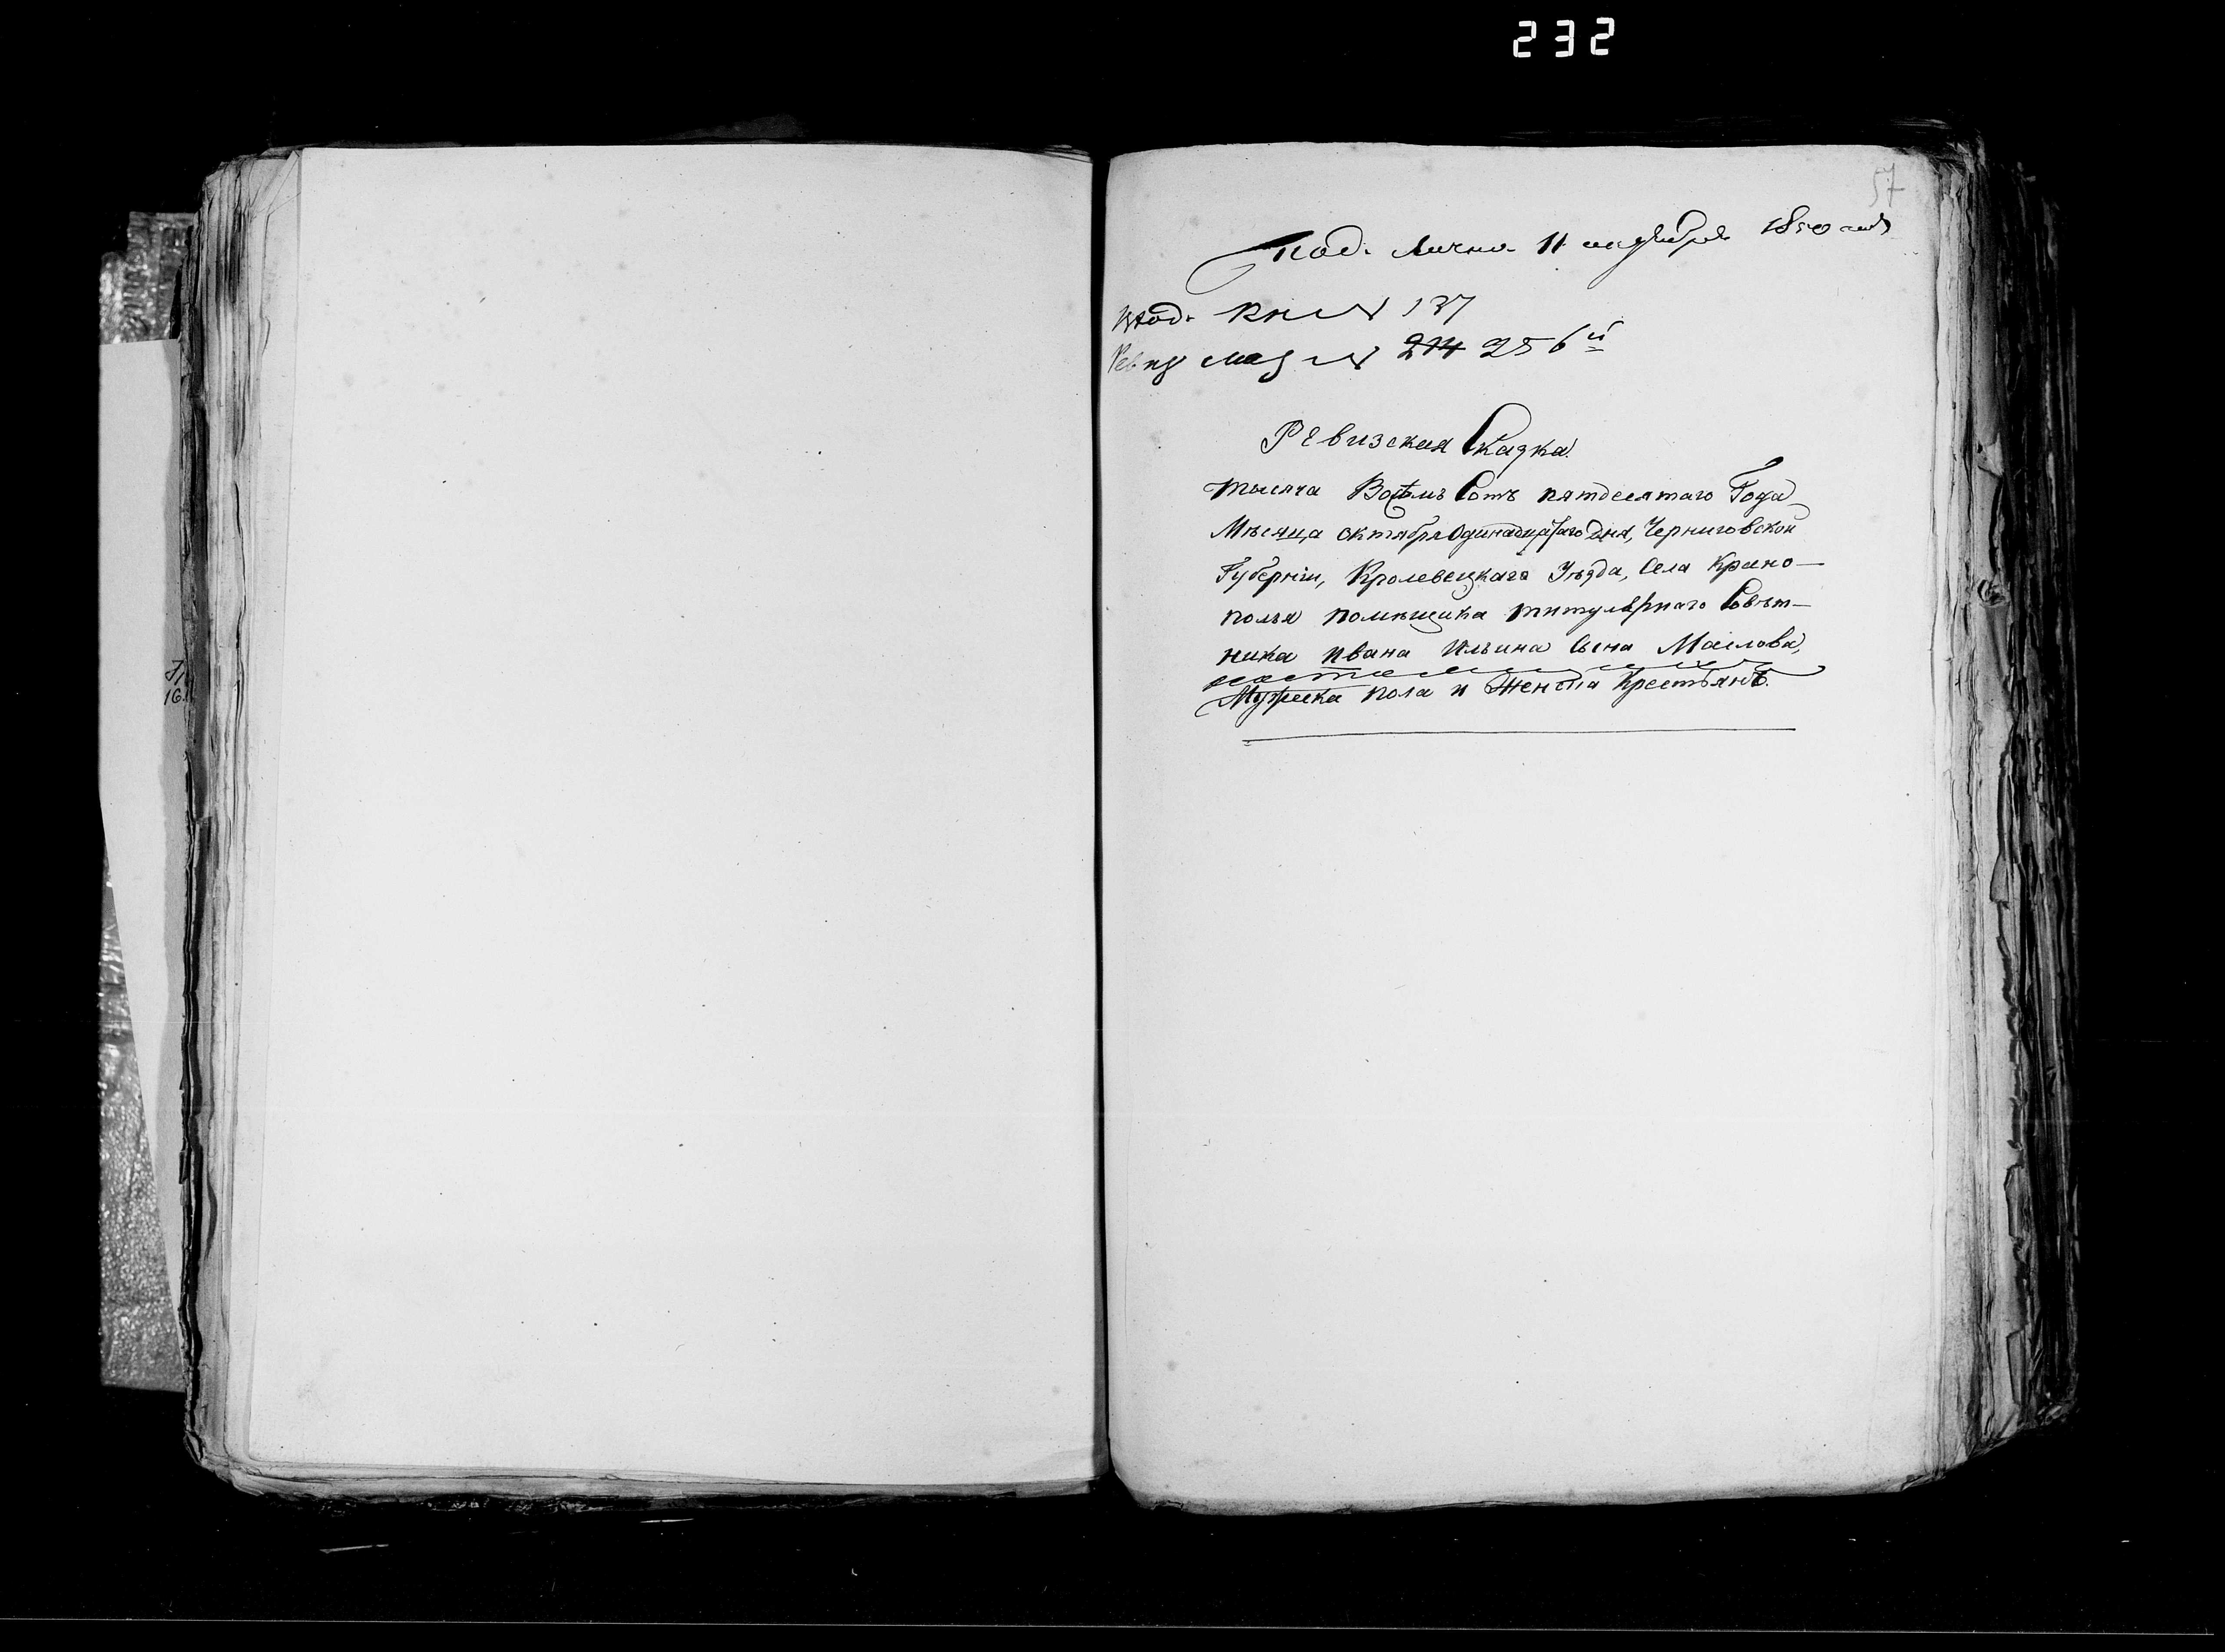 232
57
под. лично 11 октября 1850 года
Вход. Кн. № 137
Ревиз. Сказ. № 214 256й
Ревизская Сказка
тысяча Восемъ Сотъ пятдесятаго Года
Мѣсяца октября Одинадцатаго Дня, Черниговской
Губерніи, Кролевецкаго Уѣзда, Села Крано-
полья помѣщика титулярнаго Совѣт-
ника Ивана Ильина Сына Маслова,
Мужеска пола и Женска Крестьянъ.